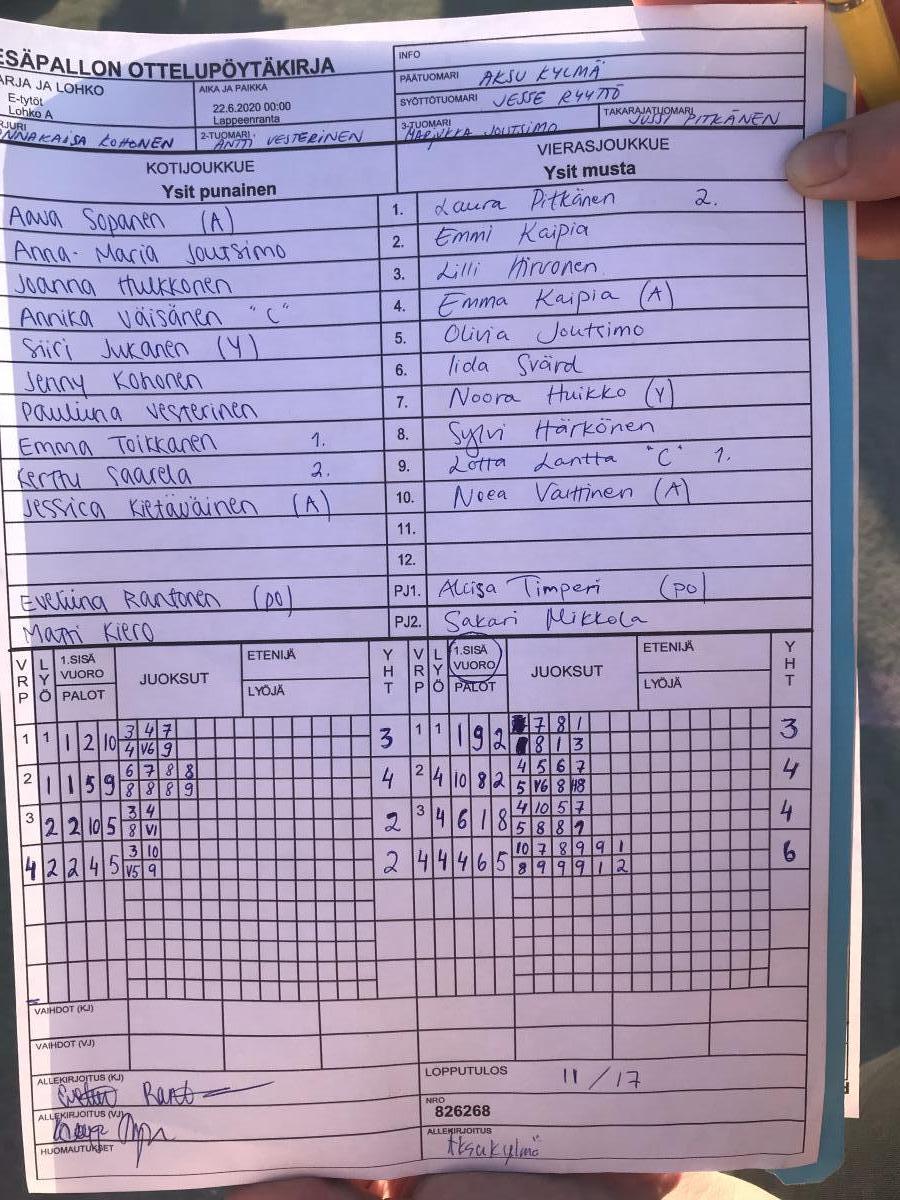 ESÄPALLON OTTELUPÖYTÄKIRJA
ARJA JA LOHKO
E-tytöt
Lohko A
AIKA JA PAIKKA
22.6.2020 00:00
Lappeenranta
INFO
PÄÄTUOMARI AKSU KYLMÄ
SYÖTTÖTUOMARI JESSE RYYTTÖ
RJURI
NNAKAISA KOHONEN
2-TUOMARI
ANTTI VESTERINEN
3-TUOMARI
MARINKKA JOUTSIMO
TAKARAJATUOMARI
JUSSI PITKÄNEN
KOTIJOUKKUE
Ysit punainen
VIERASJOUKKUE
Ysit musta
Aava Sopanen (A) 1. Laura Pitkänen 2.
Anna-Maria Joutsimo 2. Emmi Kaipia
Joanna Hulkkonen 3. Lilli Hirvonen
Annika Väisänen "C" 4. Emma Kaipia (A)
Siiri Jukanen (Y) 5. Olivia Joutsimo
Jenny Kohonen 6. Iida Svärd
Pauliina Vesterinen 7. Noora Huikko (Y)
Emma Toikkanen 1. 8. Sylvi Härkönen
Kerttu Saarela 2. 9. Lotta Lantta "C" 1.
Jessica Kietäväinen (A) 10. Neea Vaittinen (A)
11.
12.
Eveliina Rantonen (po) PJ1. Aliisa Timperi (po)
Matti Kiero PJ2. Sakari Mikkola
VRP LYÖ 1.SISÄ VUORO PALOT JUOKSUT ETENIJÄ LYÖJÄ YHT VRP LYÖ 1.SISÄ VUORO PALOT JUOKSUT ETENIJÄ LYÖJÄ YHT
3 4 7 7 8 1
1 1 1 2 10 3 1 1 1 9 2 3
4 V6 9 8 1 3
6 7 8 8 4 5 6 7
2 1 1 5 9 4 2 4 10 8 2 4
8 8 8 9 5 V6 8 H8
3 4 4 10 5 7
3 2 2 10 5 2 3 4 6 1 8 4
8 V1 5 8 8 9
3 10 10 7 8 9 9 1
4 2 2 4 5 2 4 4 4 6 5 6
V5 9 8 9 9 9 1 2
VAIHDOT (KJ)
VAIHDOT (VJ)
ALLEKIRJOITUS (KJ)
LOPPUTULOS 11 / 17
ALLEKIRJOITUS (VJ)
NRO
826268
HUOMAUTUKSET
ALLEKIRJOITUS
Aksu Kylmä